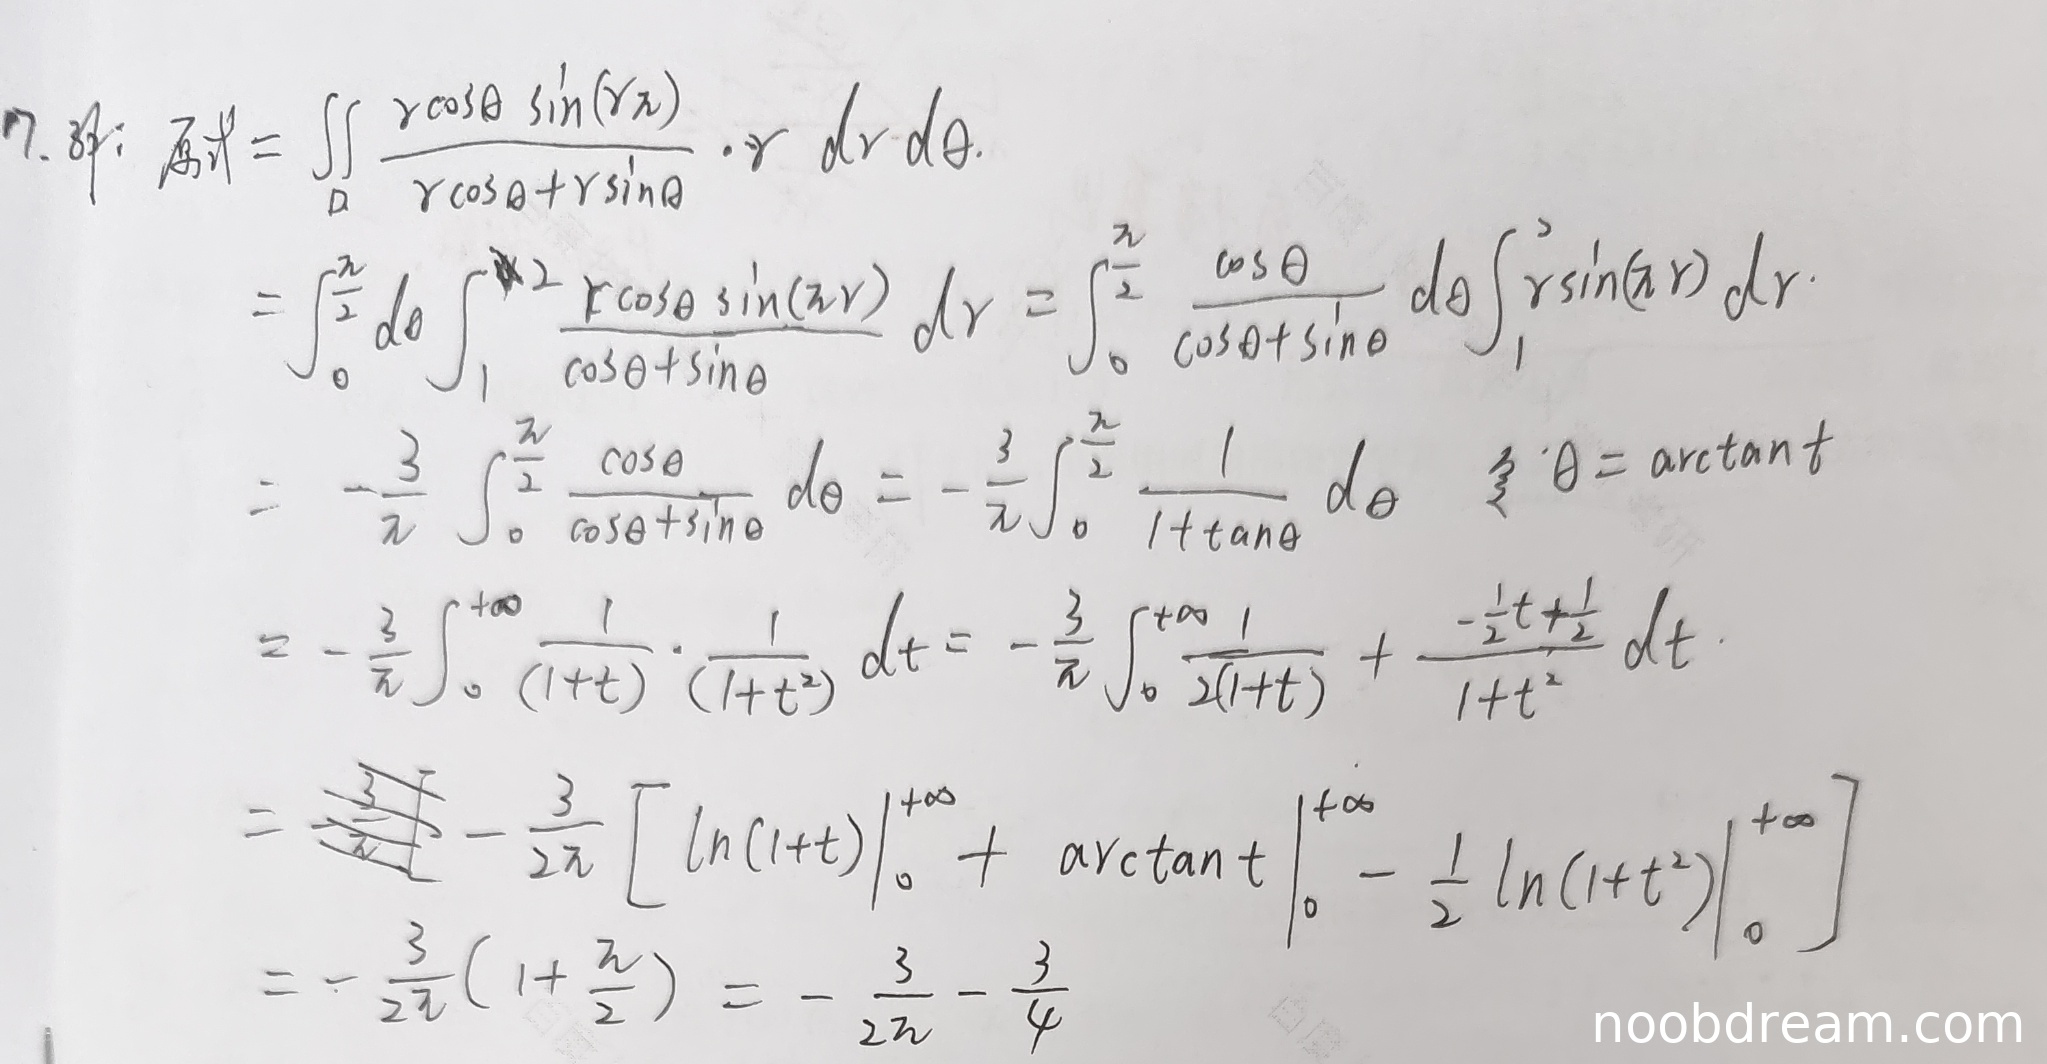 7. 解: 原式 = ∬_D (rcosθ sin(rπ))/(rcosθ+rsinθ) · r dr dθ.
= ∫_0^{π/2} dθ ∫_1^2 (rcosθ sin(πr))/(cosθ+sinθ) dr = ∫_0^{π/2} cosθ/(cosθ+sinθ) dθ ∫_1^2 rsin(πr) dr.
= -3/π ∫_0^{π/2} cosθ/(cosθ+sinθ) dθ = -3/π ∫_0^{π/2} 1/(1+tanθ) dθ 令 θ = arctant
= -3/π ∫_0^{+∞} 1/(1+t) · 1/(1+t²) dt = -3/π ∫_0^{+∞} 1/(2(1+t)) + (-1/2 t + 1/2)/(1+t²) dt.
= -3/(2π) [ ln(1+t)|_0^{+∞} + arctant|_0^{+∞} - 1/2 ln(1+t²)|_0^{+∞} ]
= -3/(2π) (1+π/2) = -3/(2π) - 3/4
noobdream.com